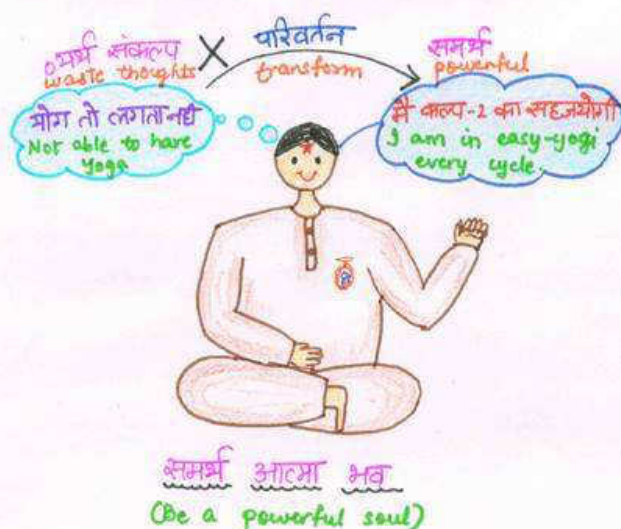 व्यर्थ संकल्प
waste thoughts
परिवर्तन
transform
समर्थ
powerful
योग तो लगता नहीं
Not able to have
yoga
मैं कल्प-2 का सहजयोगी
I am in easy-yogi
every cycle.
समर्थ आत्मा भव
(Be a powerful soul)